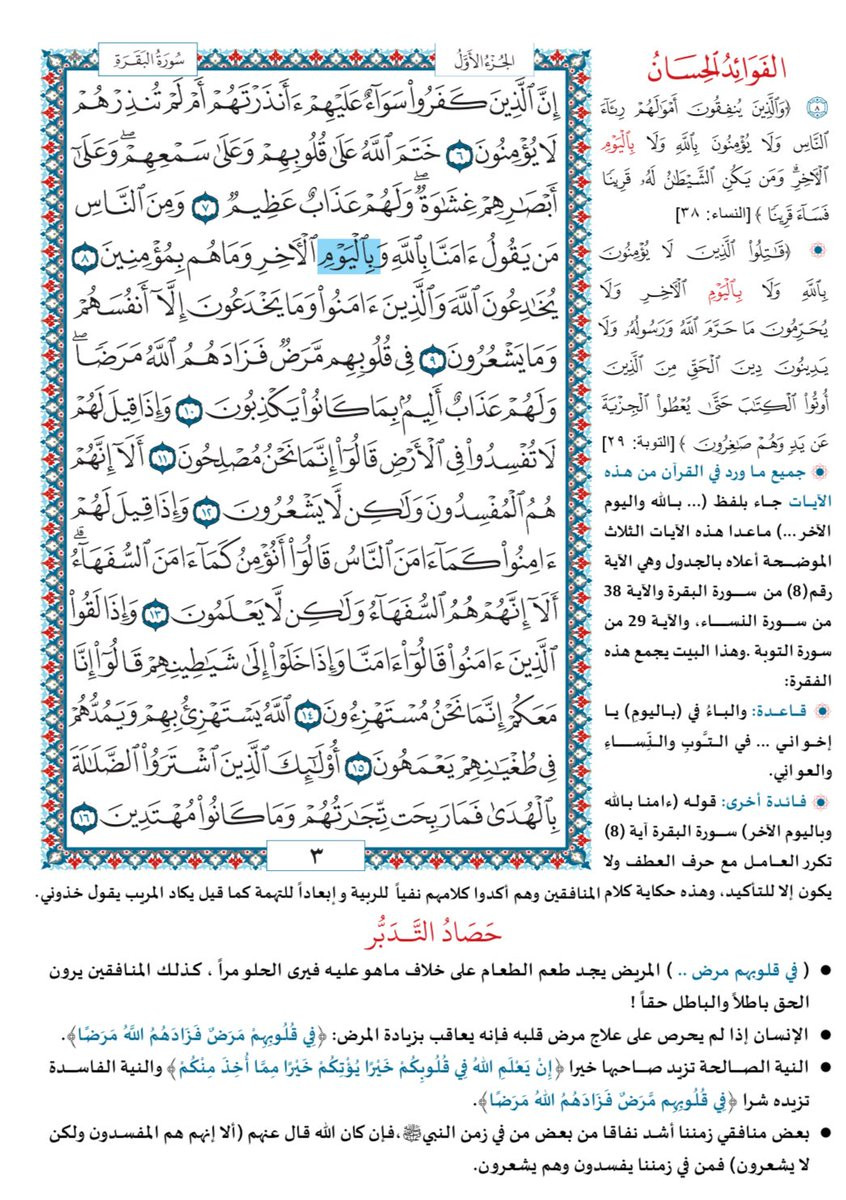 سُورَةُ البَقَرَةِ
الجُزْءُ الأَوَّلُ
إِنَّ ٱلَّذِينَ كَفَرُواْ سَوَآءٌ عَلَيْهِمْ ءَأَنذَرْتَهُمْ أَمْ لَمْ تُنذِرْهُمْ
لَا يُؤْمِنُونَ ٦ خَتَمَ ٱللَّهُ عَلَىٰ قُلُوبِهِمْ وَعَلَىٰ سَمْعِهِمْۖ وَعَلَىٰٓ
أَبْصَٰرِهِمْ غِشَٰوَةٌۖ وَلَهُمْ عَذَابٌ عَظِيمٌ ٧ وَمِنَ ٱلنَّاسِ
مَن يَقُولُ ءَامَنَّا بِٱللَّهِ وَبِٱلْيَوْمِ ٱلْأَخِرِ وَمَا هُم بِمُؤْمِنِينَ ٨
يُخَٰدِعُونَ ٱللَّهَ وَٱلَّذِينَ ءَامَنُواْ وَمَا يَخْدَعُونَ إِلَّآ أَنفُسَهُمْ
وَمَا يَشْعُرُونَ ٩ فِى قُلُوبِهِم مَّرَضٌ فَزَادَهُمُ ٱللَّهُ مَرَضًاۖ
وَلَهُمْ عَذَابٌ أَلِيمٌۢ بِمَا كَانُواْ يَكْذِبُونَ ١٠ وَإِذَا قِيلَ لَهُمْ
لَا تُفْسِدُواْ فِى ٱلْأَرْضِ قَالُوٓاْ إِنَّمَا نَحْنُ مُصْلِحُونَ ١١ أَلَآ إِنَّهُمْ
هُمُ ٱلْمُفْسِدُونَ وَلَٰكِن لَّا يَشْعُرُونَ ١٢ وَإِذَا قِيلَ لَهُمْ
ءَامِنُواْ كَمَآ ءَامَنَ ٱلنَّاسُ قَالُوٓاْ أَنُؤْمِنُ كَمَآ ءَامَنَ ٱلسُّفَهَآءُۗ
أَلَآ إِنَّهُمْ هُمُ ٱلسُّفَهَآءُ وَلَٰكِن لَّا يَعْلَمُونَ ١٣ وَإِذَا لَقُواْ
ٱلَّذِينَ ءَامَنُواْ قَالُوٓاْ ءَامَنَّا وَإِذَا خَلَوْاْ إِلَىٰ شَيَٰطِينِهِمْ قَالُوٓاْ إِنَّا
مَعَكُمْ إِنَّمَا نَحْنُ مُسْتَهْزِءُونَ ١٤ ٱللَّهُ يَسْتَهْزِئُ بِهِمْ وَيَمُدُّهُمْ
فِى طُغْيَٰنِهِمْ يَعْمَهُونَ ١٥ أُوْلَٰٓئِكَ ٱلَّذِينَ ٱشْتَرَوُاْ ٱلضَّلَٰلَةَ
بِٱلْهُدَىٰ فَمَا رَبِحَت تِّجَٰرَتُهُمْ وَمَا كَانُواْ مُهْتَدِينَ ١٦
٣
الفَوَائِدُ الحِسَانُ
٨ ﴿وَٱلَّذِينَ يُنفِقُونَ أَمْوَٰلَهُمْ رِئَآءَ
ٱلنَّاسِ وَلَا يُؤْمِنُونَ بِٱللَّهِ وَلَا بِٱلْيَوْمِ
ٱلْأَخِرِۗ وَمَن يَكُنِ ٱلشَّيْطَٰنُ لَهُۥ قَرِينًا
فَسَآءَ قَرِينًا﴾ [النساء: ٣٨]
﴿قَٰتِلُواْ ٱلَّذِينَ لَا يُؤْمِنُونَ
بِٱللَّهِ وَلَا بِٱلْيَوْمِ ٱلْأَخِرِ وَلَا
يُحَرِّمُونَ مَا حَرَّمَ ٱللَّهُ وَرَسُولُهُۥ وَلَا
يَدِينُونَ دِينَ ٱلْحَقِّ مِنَ ٱلَّذِينَ
أُوتُواْ ٱلْكِتَٰبَ حَتَّىٰ يُعْطُواْ ٱلْجِزْيَةَ
عَن يَدٍ وَهُمْ صَٰغِرُونَ﴾ [التوبة: ٢٩]
جميع ما ورد في القرآن من هذه
الآيات جاء بلفظ (... بالله واليوم
الآخر ...) ماعدا هذه الآيات الثلاث
الموضحة أعلاه بالجدول وهي الآية
رقم(8) من سورة البقرة والآية 38
من سورة النساء، والآية 29 من
سورة التوبة .وهذا البيت يجمع هذه
الفقرة:
قاعدة: والباءُ في (باليومِ) يا
إخواني ... في التَّوبِ والنِّساءِ
والعوانِي.
فائدة أخرى: قوله (ءامنا بالله
وباليوم الآخر) سورة البقرة آية (8)
تكرر العامل مع حرف العطف ولا
يكون إلا للتأكيد، وهذه حكاية كلام المنافقين وهم أكدوا كلامهم نفياً للريبة و إبعاداً للتهمة كما قيل يكاد المريب يقول خذوني.
حَصَادُ التَّدَبُّر
● ( في قلوبهم مرض .. ) المريض يجد طعم الطعام على خلاف ماهو عليه فيرى الحلو مراً ، كذلك المنافقين يرون
الحق باطلاً والباطل حقاً !
● الإنسان إذا لم يحرص على علاج مرض قلبه فإنه يعاقب بزيادة المرض: ﴿فِي قُلُوبِهِمْ مَرَضٌ فَزَادَهُمُ اللَّهُ مَرَضًا﴾.
● النية الصالحة تزيد صاحبها خيرا ﴿إِنْ يَعْلَمِ اللهُ فِي قُلُوبِكُمْ خَيْرًا يُؤْتِكُمْ خَيْرًا مِمَّا أُخِذَ مِنْكُمْ﴾ والنية الفاسدة
تزيده شرا ﴿فِي قُلُوبِهِم مَّرَضٌ فَزَادَهُمُ اللهُ مَرَضًا﴾.
● بعض منافقي زمننا أشد نفاقا من بعض من في زمن النبي ﷺ ،فإن كان الله قال عنهم (ألا إنهم هم المفسدون ولكن
لا يشعرون) فمن في زمننا يفسدون وهم يشعرون.